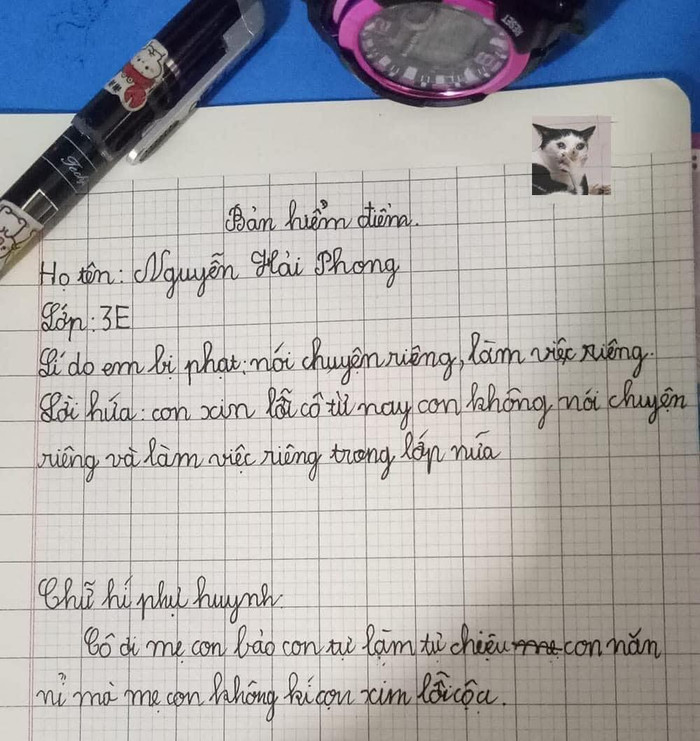 RESET
Tech
Bản hiểm điểm.
Họ tên: Nguyễn Hải Phong
Lớp: 3E
Lí do em bị phạt: nói chuyện riêng, làm việc riêng.
Lời hứa: con xin lỗi cô từ nay con không nói chuyện
riêng và làm việc riêng trong lớp nứa
Chữ hí phụ huynh.
Cô ơi mẹ con bảo con tự làm tự chiệu me con năn
nỉ mà mẹ con không kí cọn xim lỗi cộu.